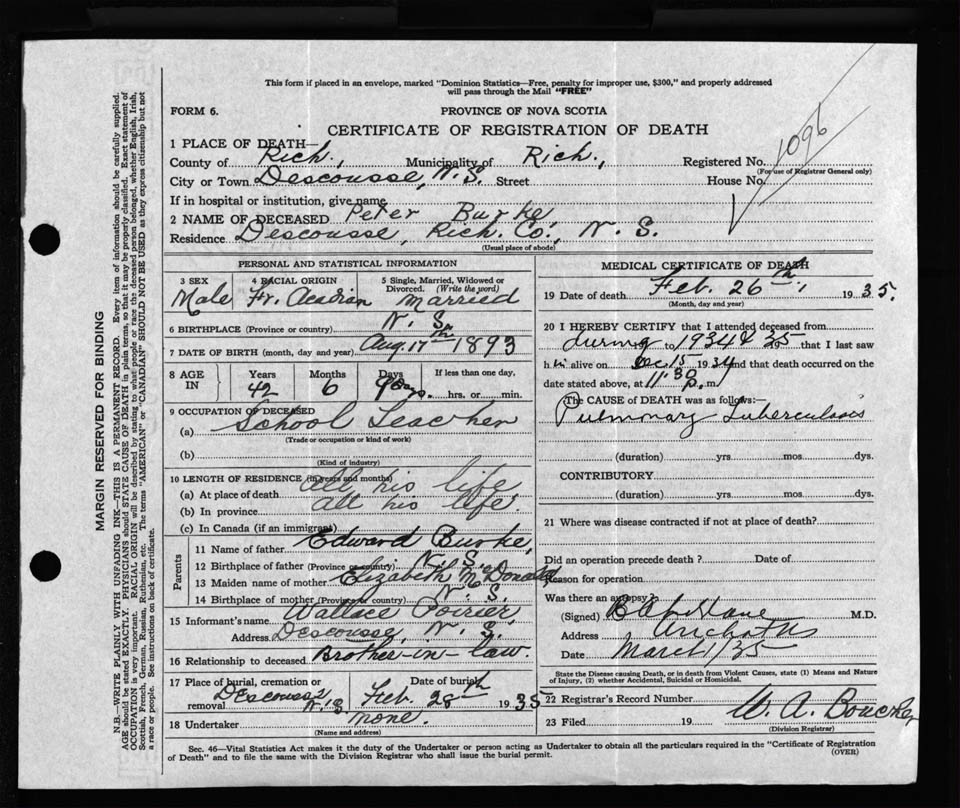 This form if placed in an envelope, marked "Dominion Statistics—Free, penalty for improper use, $300," and properly addressed
will pass through the Mail "FREE"
FORM 6.
PROVINCE OF NOVA SCOTIA
CERTIFICATE OF REGISTRATION OF DEATH
1096
1 PLACE OF DEATH—
County of Rich., Municipality of Rich., Registered No.
(For use of Registrar General only)
City or Town Descousse, N.S. Street House No.
If in hospital or institution, give name
2 NAME OF DECEASED Peter Burke
Residence Descousse, Rich. Co., N. S.
(Usual place of abode)
PERSONAL AND STATISTICAL INFORMATION
3 SEX Male
4 RACIAL ORIGIN Fr. Acadian
5 Single, Married, Widowed or Divorced. (Write the word) Married
6 BIRTHPLACE (Province or country) N. S.
7 DATE OF BIRTH (month, day and year) Aug. 17th 1893
8 AGE IN Years 42 Months 6 Days 9 Days. If less than one day, hrs. or min.
9 OCCUPATION OF DECEASED
(a) School Teacher
(Trade or occupation or kind of work)
(b)
(Kind of industry)
10 LENGTH OF RESIDENCE (in years and months)
(a) At place of death all his life
(b) In province all his life
(c) In Canada (if an immigrant)
Parents
11 Name of father Edward Burke,
12 Birthplace of father (Province or country) N. S.
13 Maiden name of mother Elizabeth McDonald
14 Birthplace of mother (Province or country) N. S.
15 Informant's name Wallace Poirier
Address Descousse, N. S.
16 Relationship to deceased Brother-in-law.
17 Place of burial, cremation or removal Descousse N.S. Date of burial Feb. 28th 1935
18 Undertaker none.
(Name and address)
MEDICAL CERTIFICATE OF DEATH
19 Date of death Feb. 26th, 1935.
(Month, day and year)
20 I HEREBY CERTIFY that I attended deceased from
during to 1934 & 35 that I last saw
h im alive on Dec. 15 1934 and that death occurred on the
date stated above, at 11.30 p. m
The CAUSE OF DEATH was as follows:—
Pulmonary Tuberculosis
(duration) yrs mos dys.
CONTRIBUTORY
(duration) yrs. mos. dys.
21 Where was disease contracted if not at place of death?
Did an operation precede death ? Date of
Reason for operation
Was there an autopsy?
(Signed) M.D.
Address Arichat NS
Date March 1/35
State the Disease causing Death, or in death from Violent Causes, state (1) Means and Nature
of Injury, (2) whether Accidental, Suicidal or Homicidal.
22 Registrar's Record Number
23 Filed 19 W. A.
(Division Registrar)
Sec. 46—Vital Statistics Act makes it the duty of the Undertaker or person acting as Undertaker to obtain all the particulars required in the "Certificate of Registration
of Death" and to file the same with the Division Registrar who shall issue the burial permit.
(OVER)
MARGIN RESERVED FOR BINDING
N.B.—WRITE PLAINLY WITH UNFADING INK—THIS IS A PERMANENT RECORD. Every item of information should be carefully supplied.
AGE should be stated EXACTLY. PHYSICIANS should STATE CAUSE OF DEATH in plain terms, so that it may be properly classified. Exact statement of
OCCUPATION is very important. RACIAL ORIGIN will be described by stating to what people or race the deceased person belonged, whether English, Irish,
Scottish, French, German, Russian, Ruthenian, etc. The terms "AMERICAN" or "CANADIAN" SHOULD NOT BE USED as they express citizenship but not
a race or people. See instructions on back of certificate.